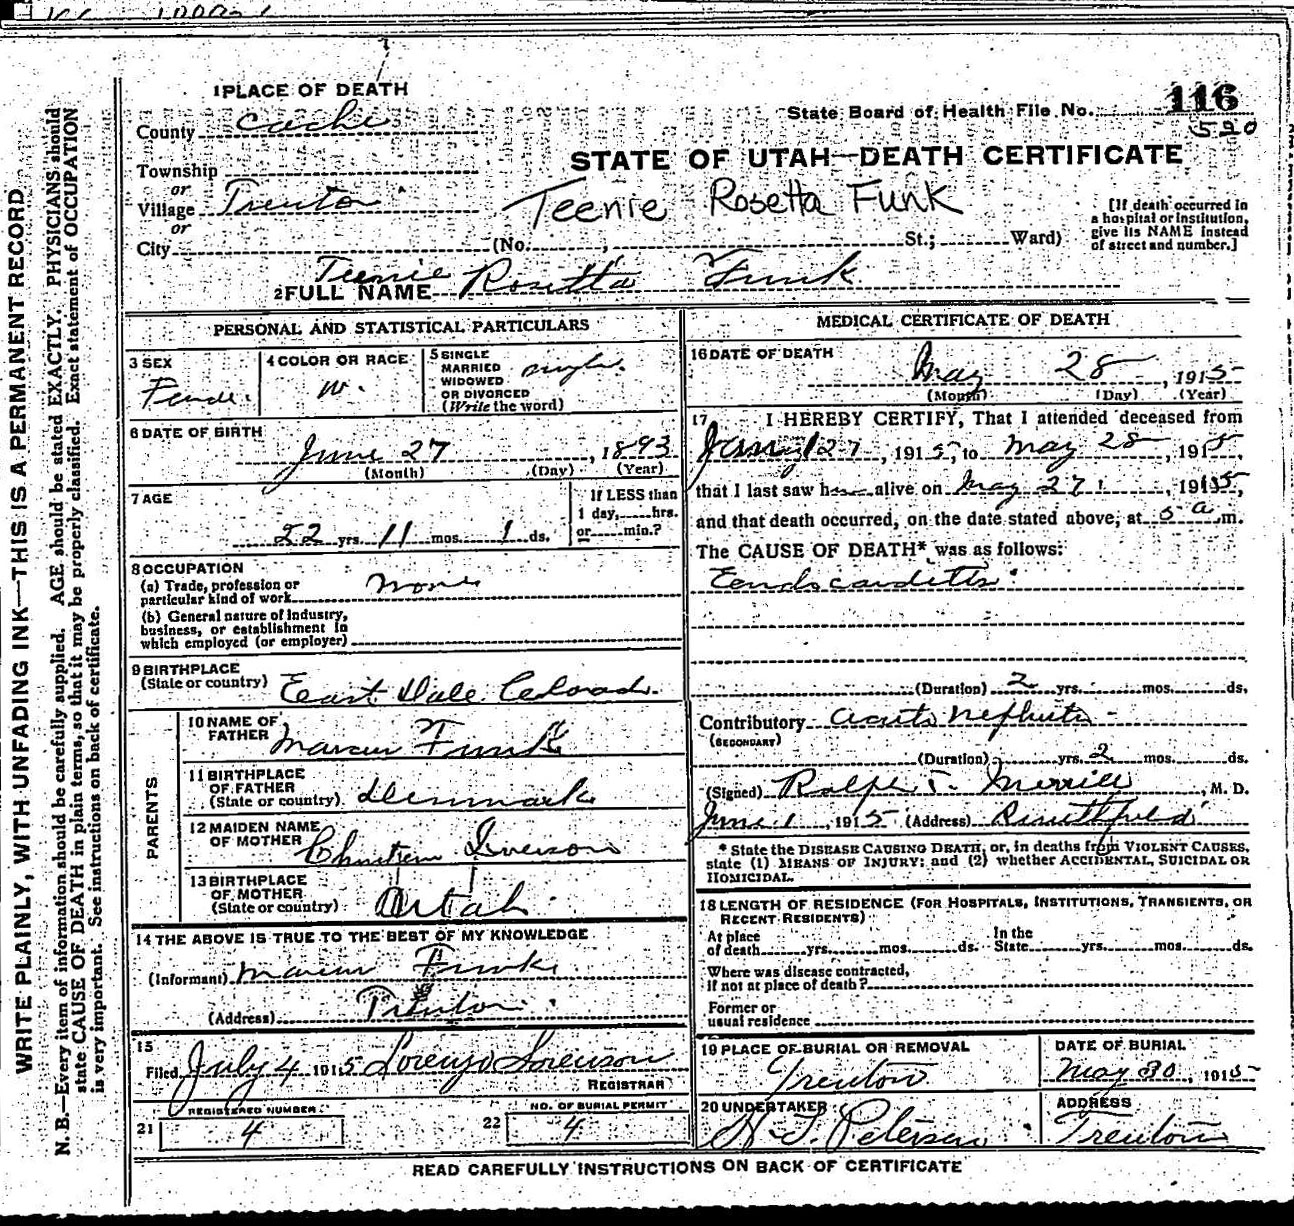 1 PLACE OF DEATH
County Cache
State Board of Health File No. 116
520
Township
or
Village Trenton
or
City
STATE OF UTAH—DEATH CERTIFICATE
Teenie Rosetta Funk
(No. , St.; Ward)
[If death occurred in
a hospital or institution,
give its NAME instead
of street and number.]
2 FULL NAME Teenie Rosetta Funk
PERSONAL AND STATISTICAL PARTICULARS
3 SEX
Female
4 COLOR OR RACE
W.
5 SINGLE
MARRIED
WIDOWED
OR DIVORCED
(Write the word)
single.
6 DATE OF BIRTH
June 27, 1893
(Month) (Day) (Year)
7 AGE
22 yrs. 11 mos. 1 ds.
If LESS than
1 day, hrs.
or min.?
8 OCCUPATION
(a) Trade, profession or
particular kind of work None
(b) General nature of industry,
business, or establishment in
which employed (or employer)
9 BIRTHPLACE
(State or country) East Dale Colorado.
PARENTS
10 NAME OF
FATHER Marcus Funk
11 BIRTHPLACE
OF FATHER
(State or country) Denmark
12 MAIDEN NAME
OF MOTHER Iverson
13 BIRTHPLACE
OF MOTHER
(State or country) Utah.
14 THE ABOVE IS TRUE TO THE BEST OF MY KNOWLEDGE
(Informant) Marcus Funk
(Address) Trenton
15
Filed July 4 1915 Lorenzo Sorenson
REGISTRAR
REGISTERED NUMBER
21 4
NO. OF BURIAL PERMIT
22 4
MEDICAL CERTIFICATE OF DEATH
16 DATE OF DEATH
May 28, 1915
(Month) (Day) (Year)
17 I HEREBY CERTIFY, That I attended deceased from
27, 1915, to May 28, 1915,
that I last saw h alive on May 27, 1915,
and that death occurred, on the date stated above, at 5 a m.
The CAUSE OF DEATH* was as follows:
Endocarditis
(Duration) 2 yrs. mos. ds.
Contributory acute nephritis
(SECONDARY)
(Duration) yrs. 2 mos. ds.
(Signed) Ralph T. Merrill, M. D.
June 1, 1915 (Address)
* State the DISEASE CAUSING DEATH, or, in deaths from VIOLENT CAUSES,
state (1) MEANS OF INJURY; and (2) whether ACCIDENTAL, SUICIDAL OR
HOMICIDAL.
18 LENGTH OF RESIDENCE (FOR HOSPITALS, INSTITUTIONS, TRANSIENTS, OR
RECENT RESIDENTS)
At place
of death yrs. mos. ds.
In the
State yrs. mos. ds.
Where was disease contracted,
if not at place of death?
Former or
usual residence
19 PLACE OF BURIAL OR REMOVAL
Trenton
DATE OF BURIAL
May 30, 1915
20 UNDERTAKER
Petersen
ADDRESS
Trenton
READ CAREFULLY INSTRUCTIONS ON BACK OF CERTIFICATE
WRITE PLAINLY, WITH UNFADING INK—THIS IS A PERMANENT RECORD
N. B.—Every item of information should be carefully supplied. AGE should be stated EXACTLY. PHYSICIANS should
state CAUSE OF DEATH in plain terms, so that it may be properly classified. Exact statement of OCCUPATION
is very important. See instructions on back of certificate.